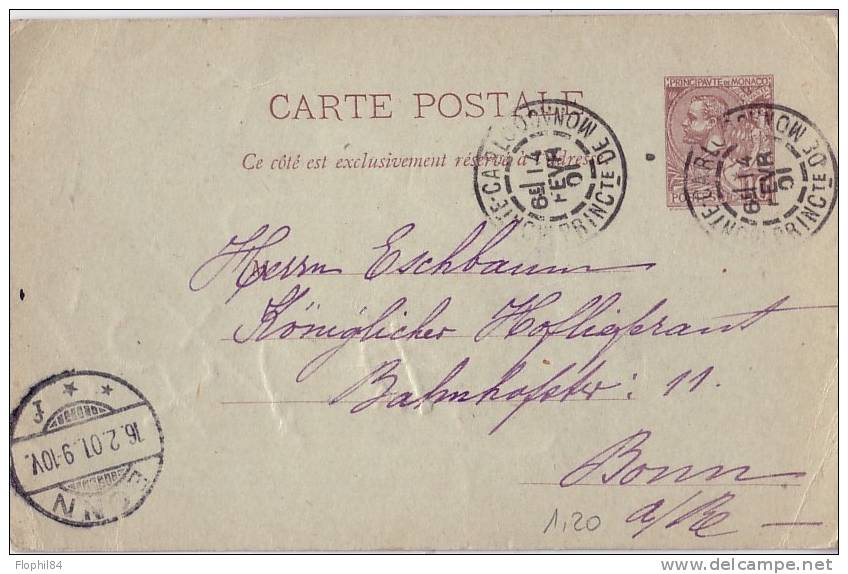 PRINCIPAVTE DE MONACO
CARTE POSTALE
Ce côté est exclusivement réservé à l'adresse
MONTE-CARLO PRINCTÉ DE MONACO
6E 14 FEVR 01
MONTE-CARLO PRINCTÉ DE MONACO
6E 14 FEVR 01
Herrn Eschbaum
Königlicher Hofliefrant
Bahnhofstr: 11.
Bonn
a/Rh
BONN
16.2.01.9-10V.
* * f
1,20
Flophil84
www.delcampe.net